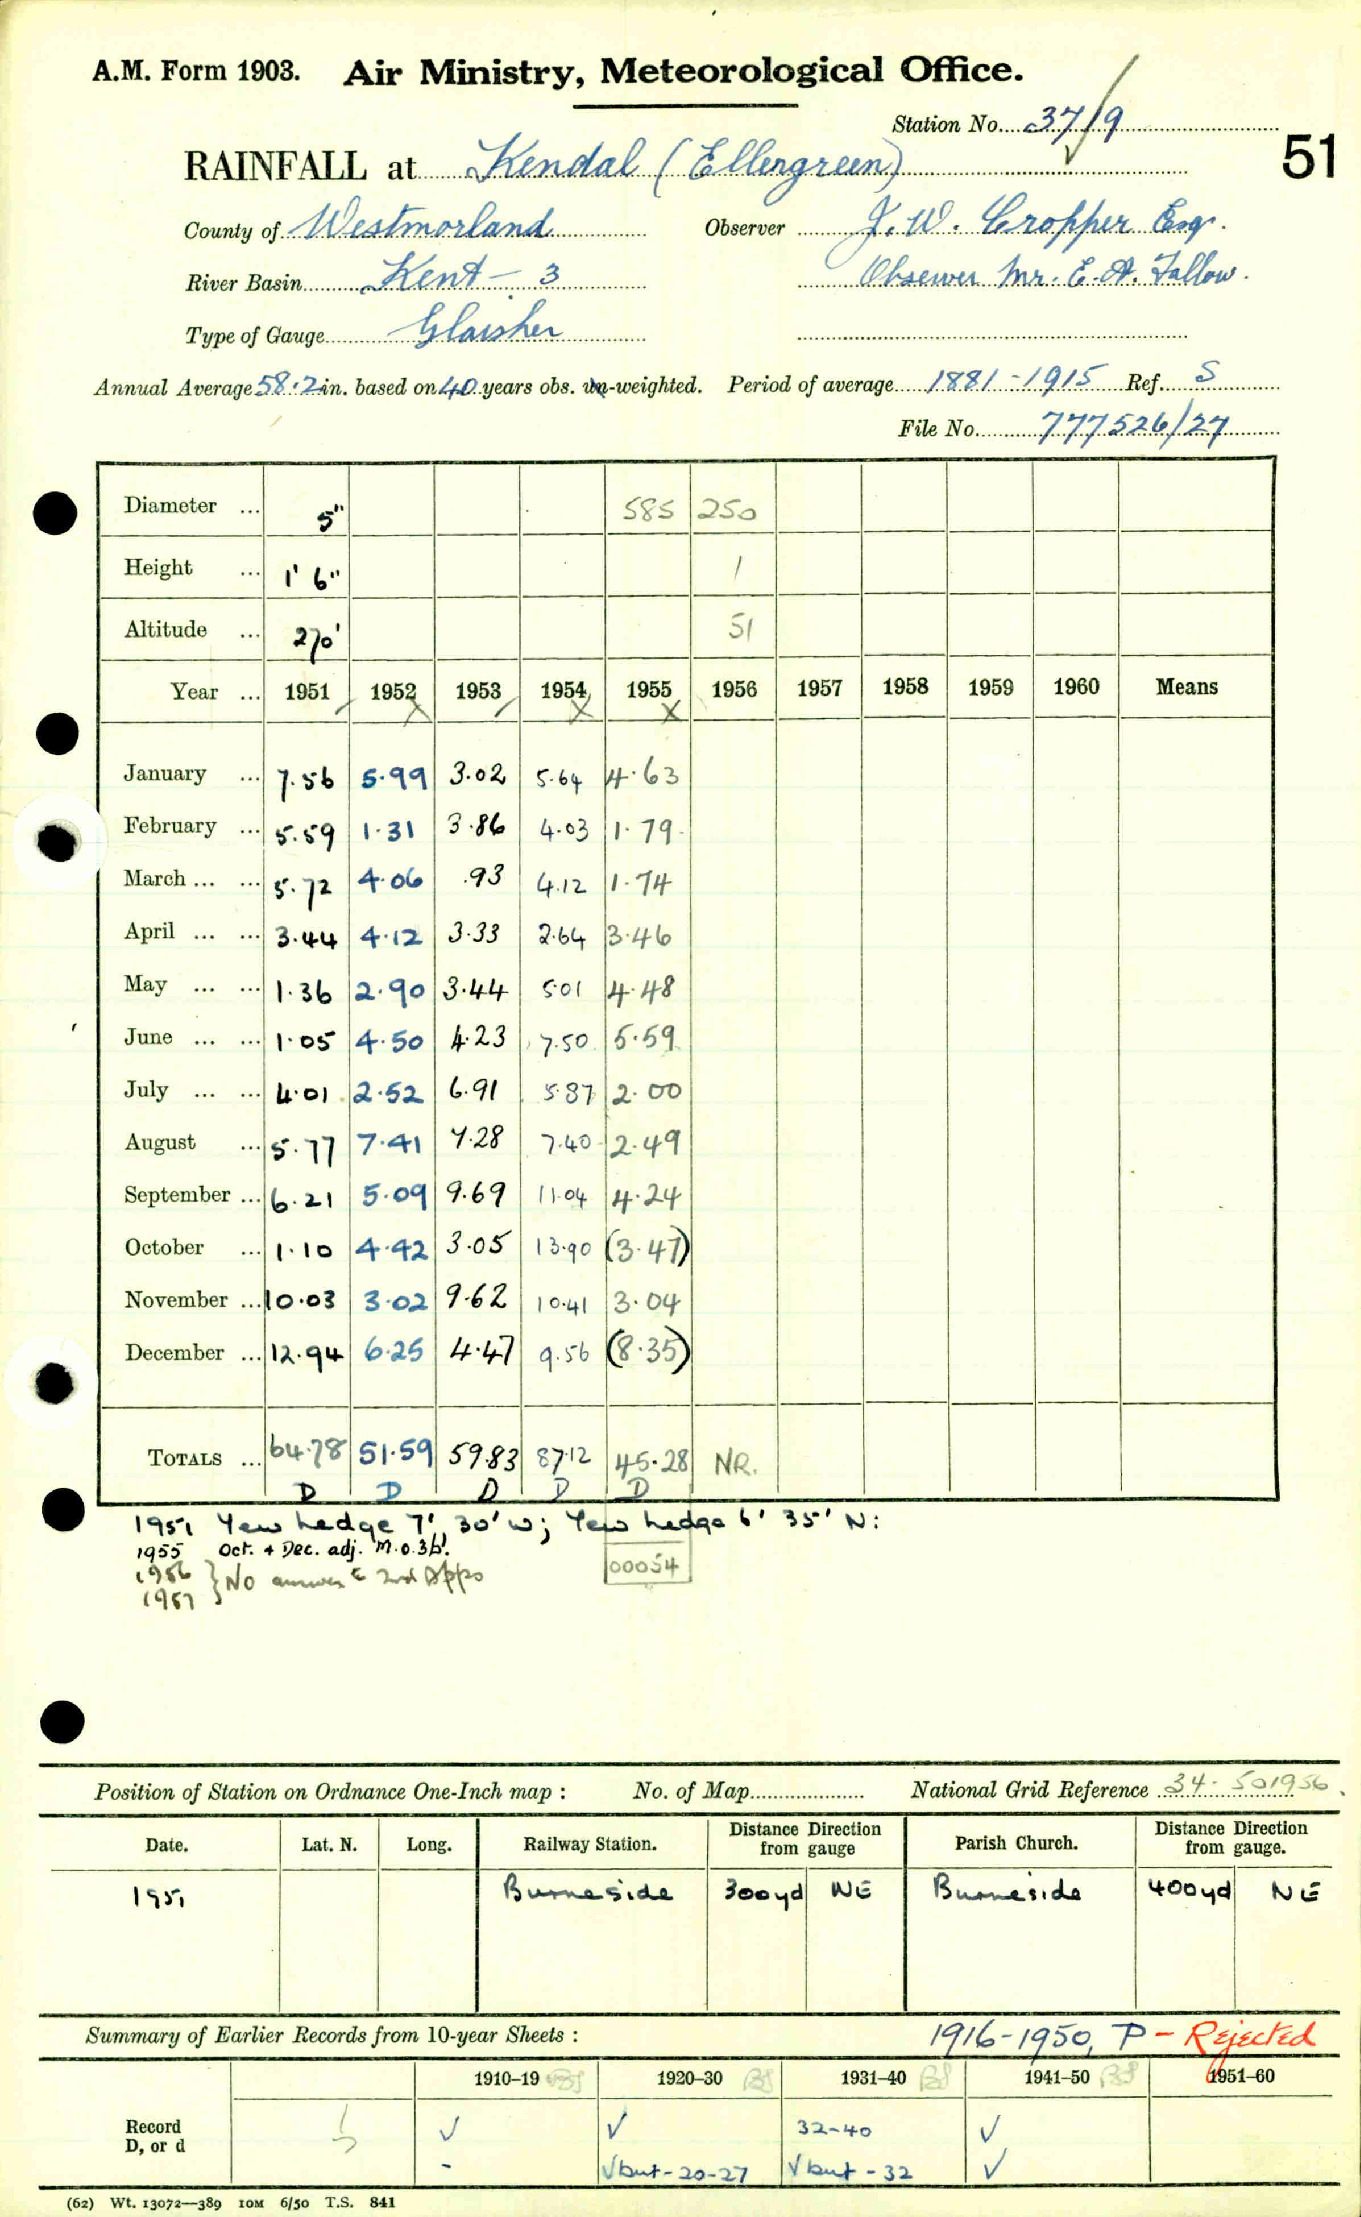 A.M. Form 1903. Air Ministry, Meteorological Office.
Station No. 37/9
51
RAINFALL at Kendal (Ellergreen)
County of Westmorland Observer J. W. Cropper Esq.
River Basin Kent - 3 Observer Mr. E. A. Fallow.
Type of Gauge Glaisher
Annual Average 58.2 in. based on 40 years obs. un-weighted. Period of average 1881-1915 Ref. S
File No. 777526/27
Diameter ... 5" 585 250
Height ... 1' 6" 1
Altitude ... 270' 51
Year ... 1951 1952 1953 1954 1955 1956 1957 1958 1959 1960 Means
January ... 7.56 5.99 3.02 5.64 4.63
February ... 5.59 1.31 3.86 4.03 1.79
March ... ... 5.72 4.06 .93 4.12 1.74
April ... ... 3.44 4.12 3.33 2.64 3.46
May ... ... 1.36 2.90 3.44 5.01 4.48
June ... ... 1.05 4.50 4.23 7.50 5.59
July ... ... 4.01 2.52 6.91 5.87 2.00
August ... 5.77 7.41 7.28 7.40 2.49
September ... 6.21 5.09 9.69 11.04 4.24
October ... 1.10 4.42 3.05 13.90 (3.47)
November ... 10.03 3.02 9.62 10.41 3.04
December ... 12.94 6.25 4.47 9.56 (8.35)
TOTALS ... 64.78 51.59 59.83 87.12 45.28 NR.
D D D D D
1951 Yew hedge 7', 30' W; Yew hedge 6' 35' N:
1955 Oct. + Dec. adj. M.O.3b.
1956 } No answer 2nd Appo
1957
00054
Position of Station on Ordnance One-Inch map : No. of Map National Grid Reference 34. 501956.
Date. Lat. N. Long. Railway Station. Distance Direction from gauge Parish Church. Distance Direction from gauge.
1951 Burneside 300yd NE Burneside 400yd NE
Summary of Earlier Records from 10-year Sheets : 1916-1950, P - Rejected
1910–19 1920–30 1931–40 1941–50 1951–60
Record ✓ ✓ 32-40 ✓
D, or d - ✓ but - 20-27 ✓ but - 32 ✓
(62) Wt. 13072—389 10M 6/50 T.S. 841